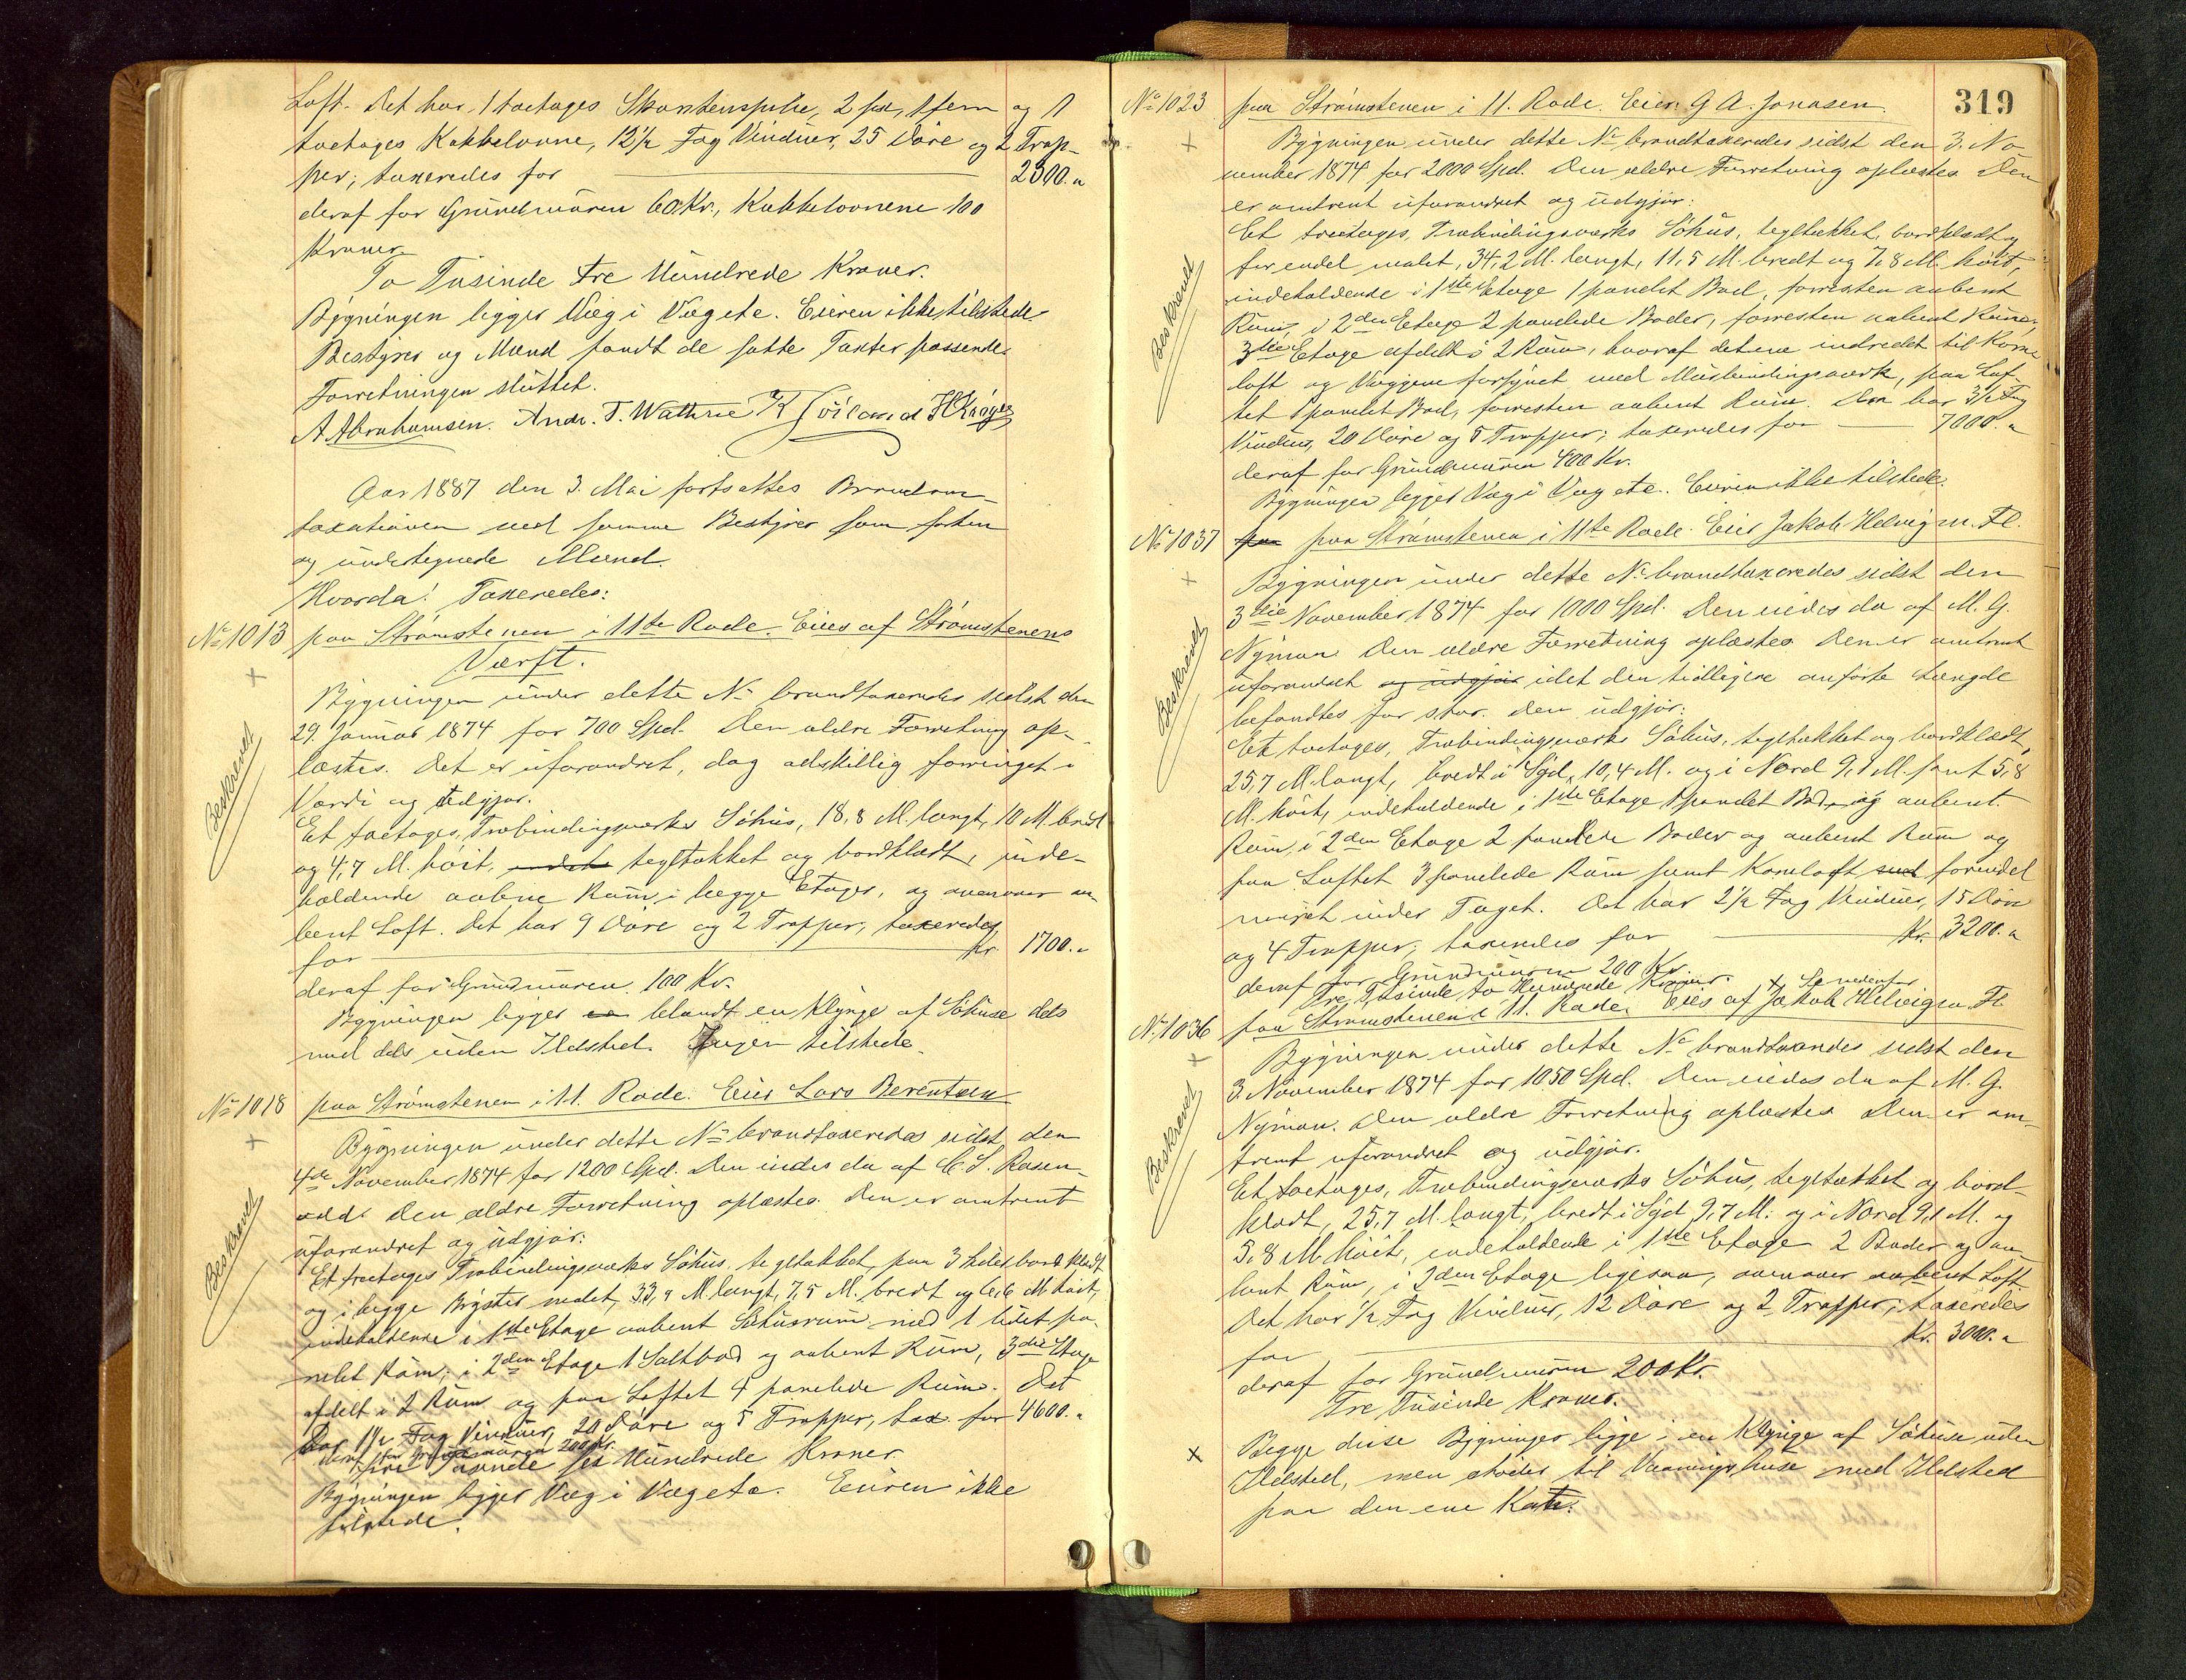 Loft. Det har 1 toetages Skorstenspibe, 2 jern og 1
toetages Kakkelovne, 12½ Fag Vinduer, 25 Døre og 2 Trap-
per; taxeredes for 2300.
deraf for Grundmuren 60 Kr., Kakkelovnene 100
Kroner
To Tusinde Tre Hundrede Kroner.
Bygningen ligger Væg i Væg etc. Eieren ikke tilstede
Bestyrer og Mænd fandt de satte Taxter passende.
Forretningen sluttet.
A Abrahamsen. Andr. T. Wathne H Krøger
Aar 1887 den 3. Mai fortsattes Brandom-
taxationen med samme Bestyrer som forhen
og undertegnede Mænd.
Hvorda: Taxeredes:
No 1013 paa Strømstenen i 11te Rode. Eies af Strømstenens
Værft.
Bygningen under dette No brandtaxeredes sidst den
29. Januar 1874 for 700 Spd. Den ældre Forretning op-
læstes. Det er uforandret, dog adskillig forringet i
Værdi og udgjør.
Beskrevet
Et toetages, Træbindingsværks Søhus, 18,8 M. langt, 10 M. bredt
og 4,7 M. høit, indeh teglsakket og bordklædt, inde-
holdende aabne Rum i begge Etager, og ovenover aa-
bent Loft. Det har 9 Døre og 2 Trapper, taxeredes
for Kr 1700.
deraf for Grundmuren 100 Kr.
Bygningen ligger en blandt en Klynge af Søhuse dels
med dels uden Ildsted. Ingen tilstede.
No 1018 paa Strømstenen i 11. Rode. Eier Lars Berentsen
Bygningen under dette No brandtaxeredes sidst den
4de November 1874 for 1200 Spd. Den eiedes da af C. S. Rosen-
Den ældre Forretning oplæstes. Den er omtrent
uforandret og udgjør:
Beskrevet
Et treetages Træbindingsværks Søhus, tegltækket, paa 3 Sider bordklædt
og i begge Bryster malet, 33,9 M. langt, 7,5 M. bredt og 6,6 M høit,
indeholdende i 1ste Etage aabent Søhusrum med 1 lidet pa-
nelet Rum; i 2den Etage 1 Saltbod og aabent Rum, 3die Etage
afdelt i 2 Rum og paa Loftet 4 panelede Rum. Det
har 1½ Fag Vinduer, 20 Døre og 5 Trapper, tax. for 4600.
deraf for Grundmuren 200 Kr.
Fire Tusinde sex Hundrede Kroner
Bygningen ligger Væg i Væg etc. Eieren ikke
tilstede.
319
No 1023 paa Strømstenen i 11. Rode. Eier G A. Jonasen.
Bygningen under dette No brandtaxeredes sidst den 3. No
vember 1874 for 2000 Spd. Den ældre Forretning oplæstes. Den
er omtrent uforandret og udgjør:
Beskrevet
Et treetages, Træbindingsværks Søhus, tegltækket, bordklædt og
for endel malet, 34,2 M. langt, 11,5 M. bredt og 7,8 M. høit,
indeholdende i 1ste Etage 1 panelet Bod, forresten aabent
Rum, i 2den Etage 2 panelede Boder, forresten aabent Rum,
3die Etage afdelt i 2 Rum, hvoraf det ene indredet til Korn
loft og Væggene forsynet med Murbindingsværk, paa Lof-
tet 1 panelet Bod, forresten aabent Rum. Den har 3½ Fag
Vinduer, 20 Døre og 5 Trapper; taxeredes for 7000.
deraf for Grundmuren 400 Kr.
Bygningen ligger Væg i Væg etc. Eieren ikke tilstede.
No 1037 paa paa Strømstenen i 11te Rode. Eier Jakob Helvig m. Fl.
Bygningen under dette No brandtaxeredes sidst den
3die November 1874 for 1000 Spd. Den eiedes da af M. G.
Nyman. Den ældre Forretning oplæstes. Den er omtrent
uforandret og udgjør idet den tidligere anførte Længde
befandtes for stor. Den udgjør:
Beskrevet
Et toetages, Træbindingsværks Søhus, tegltækket og bordklædt,
25,7 M. langt, bredt i Syd 10,4 M. og i Nord 9,1 M. samt 5,8
M. høit, indeholdende i 1ste Etage 1 panelet Bod og aabent
Rum, i 2den Etage 2 panelede Boder og aabent Rum og
paa Loftet 3 panelede Rum samt Kornloft forendel
muret under Taget. Det har 2½ Fag Vinduer, 15 Døre
og 4 Trapper, taxeredes for Kr. 3200.
deraf for Grundmuren 200 Kr.
Tre Tusinde to Hundrede Kroner. x Se nedenfor
No 1036 paa Strømstenen i 11. Rode. Eies af Jakob Helvig m. Fl
Bygningen under dette No brandtaxeredes sidst den
3. November 1874 for 1050 Spd. Den eiedes da af M. G.
Nyman. Den ældre Forretning oplæstes. Den er om-
trent uforandret og udgjør.
Beskrevet
Et toetages, Træbindingsværks Søhus, tegltækket og bord-
klædt, 25,7 M. langt, bredt i Syd 9,7 M. og i Nord 9,1 M. og
5,8 M. høit, indeholdende i 1ste Etage 2 Boder og aa-
bent Rum, i 2den Etage ligesaa, ovenover aabent Loft.
Det har ½ Fag Vinduer, 12 Døre og 2 Trapper; taxeredes
for Kr. 3000.
deraf for Grundmuren 200 Kr.
Tre Tusinde Kroner.
x Begge disse Bygninger ligge i en Klynge af Søhuse uden
Ildsted, men støder til Vaaningshuse med Ildsted
paa den ene Kant.